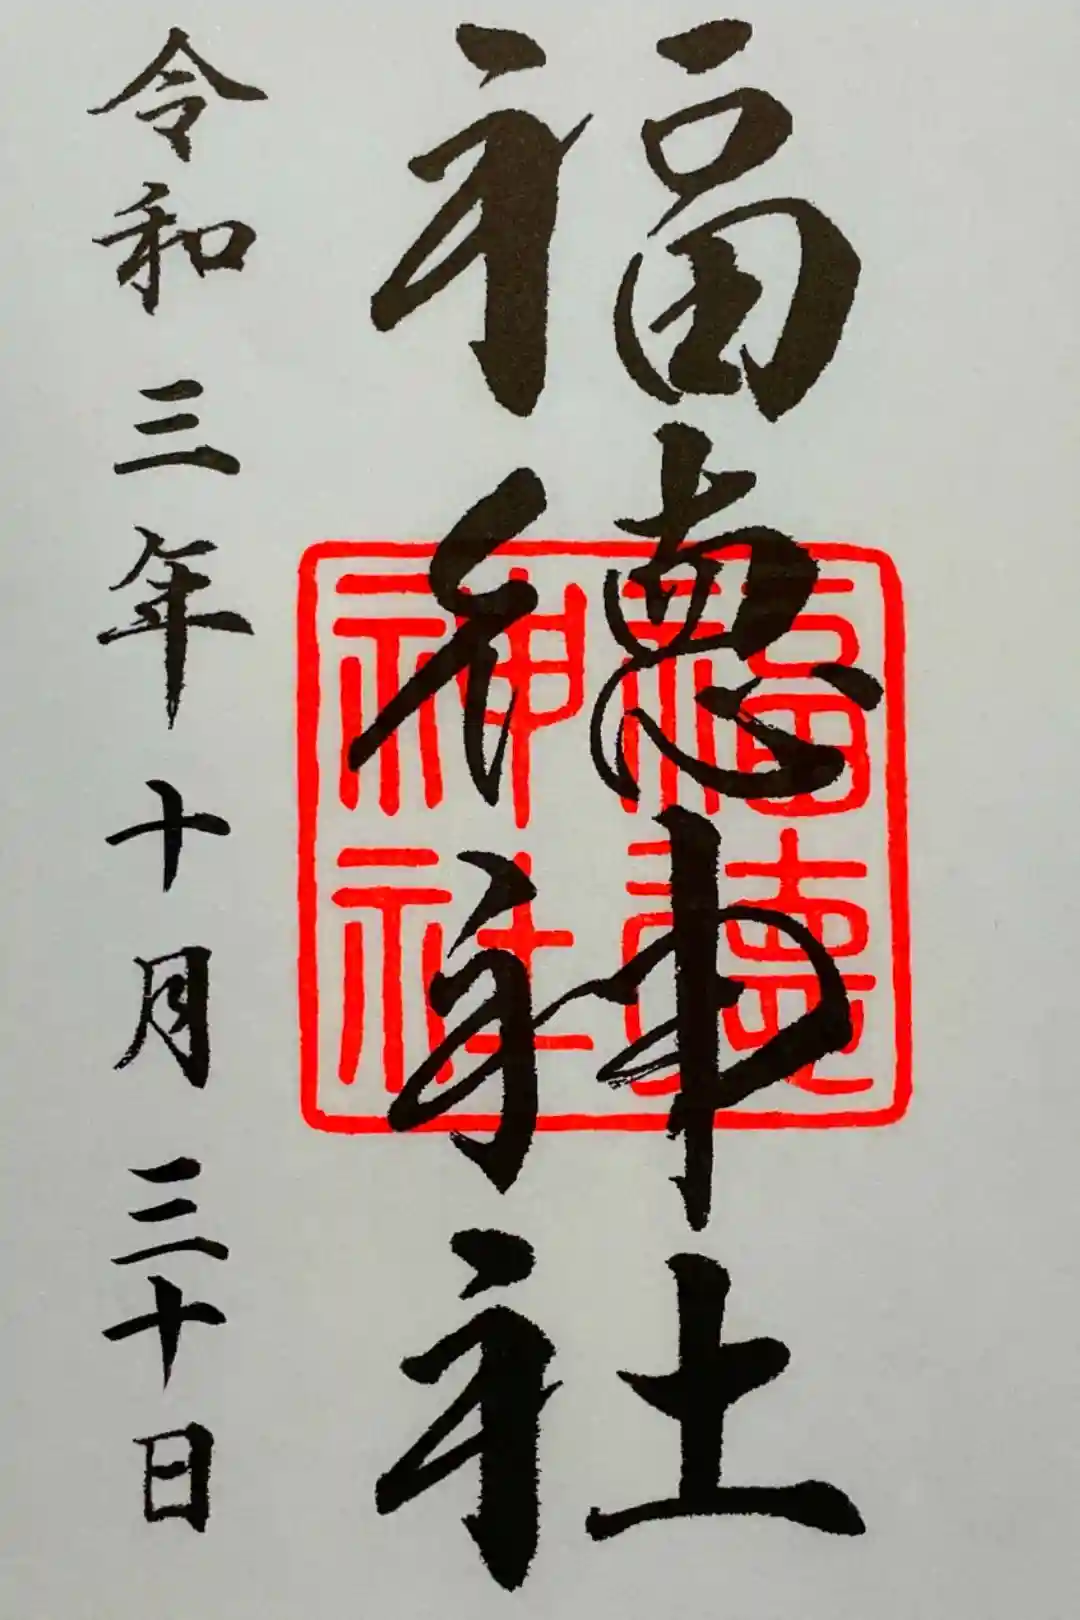 福徳神社
福徳神社
令和三年十月三十日